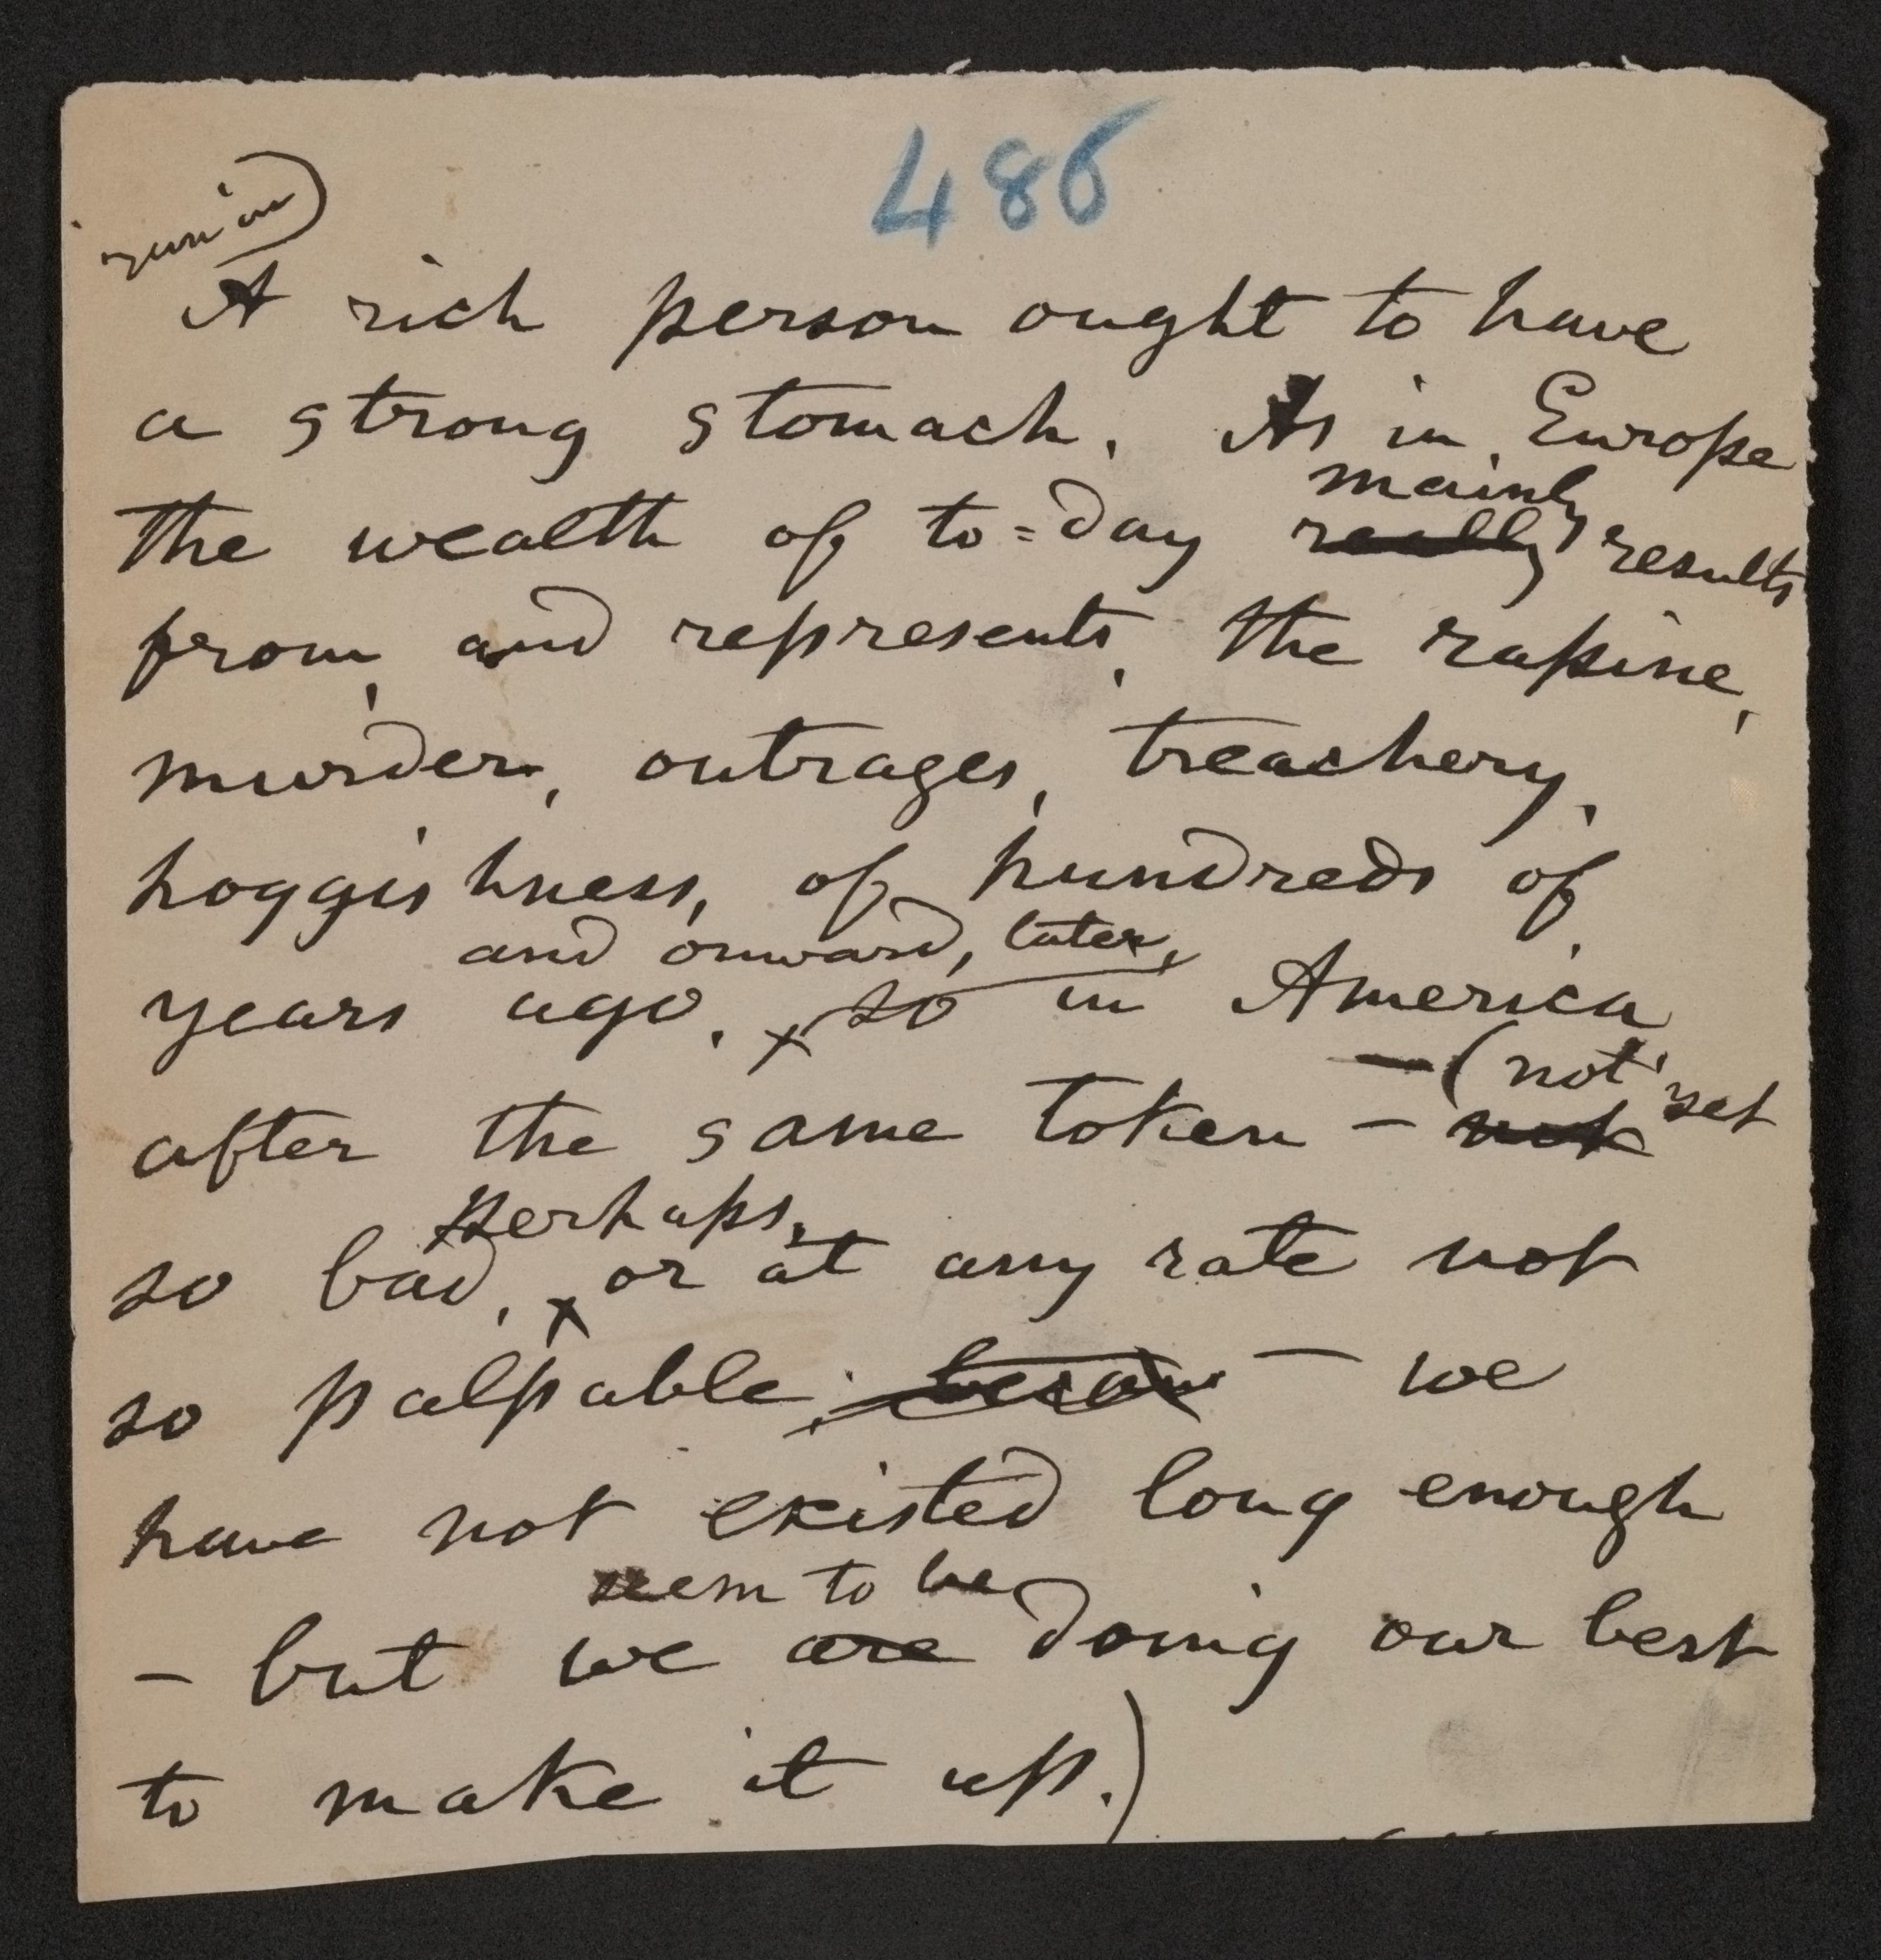 486
run in)
A rich person ought to have
a strong stomach. As in Europe
mainly
the wealth of to-day really results
from, and represents, the rapine,
murder, outrages, treachery,
hoggishness, of hundreds of
and onward, later,
years ago, so in America,
—(not yet
after the same token — not
perhaps,
so bad, or at any rate not
so palpable; — we
have not existed long enough
seem to be
— but we are doing our best
to make it up.)